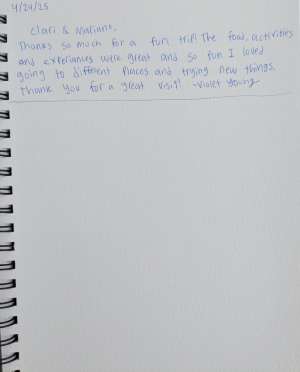 4/24/25
Clari & Mariano,
Thanks so much for a fun trip! The food, activities
and experiances were great and so fun I loved
going to different places and trying new things.
Thank you for a great visit! -Violet Young